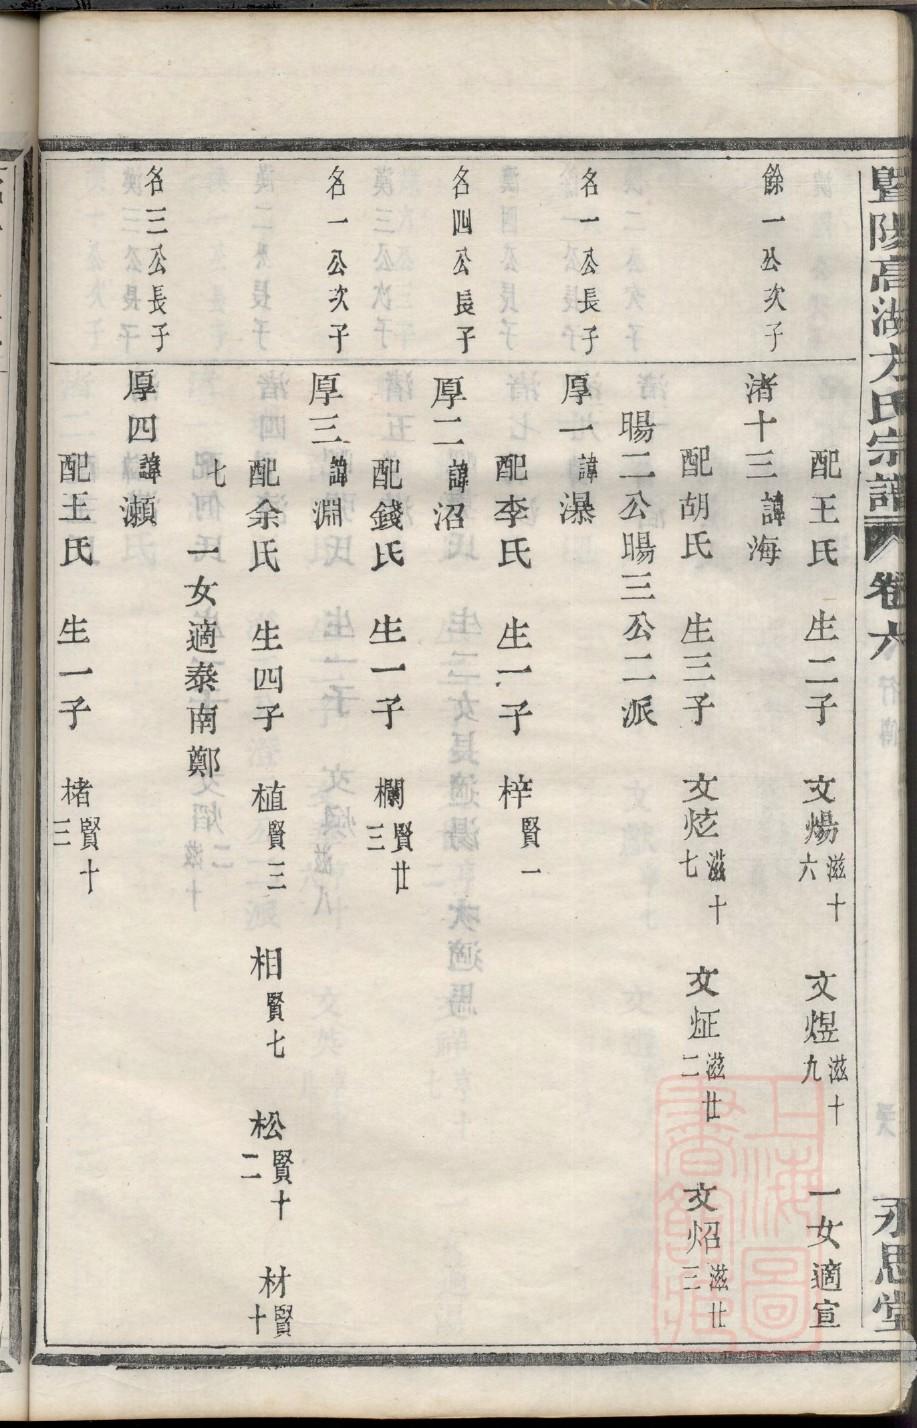 暨陽高湖方氏宗譜 卷六 永思堂
配王氏 生二子 文煬滋十六 文煜滋十九 一女適宣
餘一公次子 渚十三諱海
配胡氏 生三子 文炫滋十七 文炡滋廿二 文炤滋廿三
暘二公暘三公二派
名一公長子 厚一諱瀑
配李氏 生一子 梓賢一
名四公長子 厚二諱沼
配錢氏 生一子 欄賢廿三
名一公次子 厚三諱淵
配余氏 生四子 植賢三 相賢七 松賢十二 材賢十
七 一女適泰南鄭
名三公長子 厚四諱瀬
配王氏 生一子 楮賢十三
上海圖書館藏